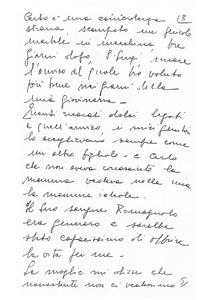 Certo è una coincidenza 3
strana, scampato un pericolo
mortale in macchina tre
giorni dopo, è morto
l'amico al quale ho voluto
più bene nei giorni della
mia giovinezza.
Quanti ricordi dolci legati
a quell'amico, i miei genitori
lo accoglievano sempre come
un altro figliolo e Carlo
che non aveva conosciuto la
mamma vedeva nella mia
la mamma ideale.
Il suo sangue Romagnolo
era generoso e sarebbe
stato capacissimo di offrire
la vita per me -
La moglie mi disse che
nonostante non ci vedessimo